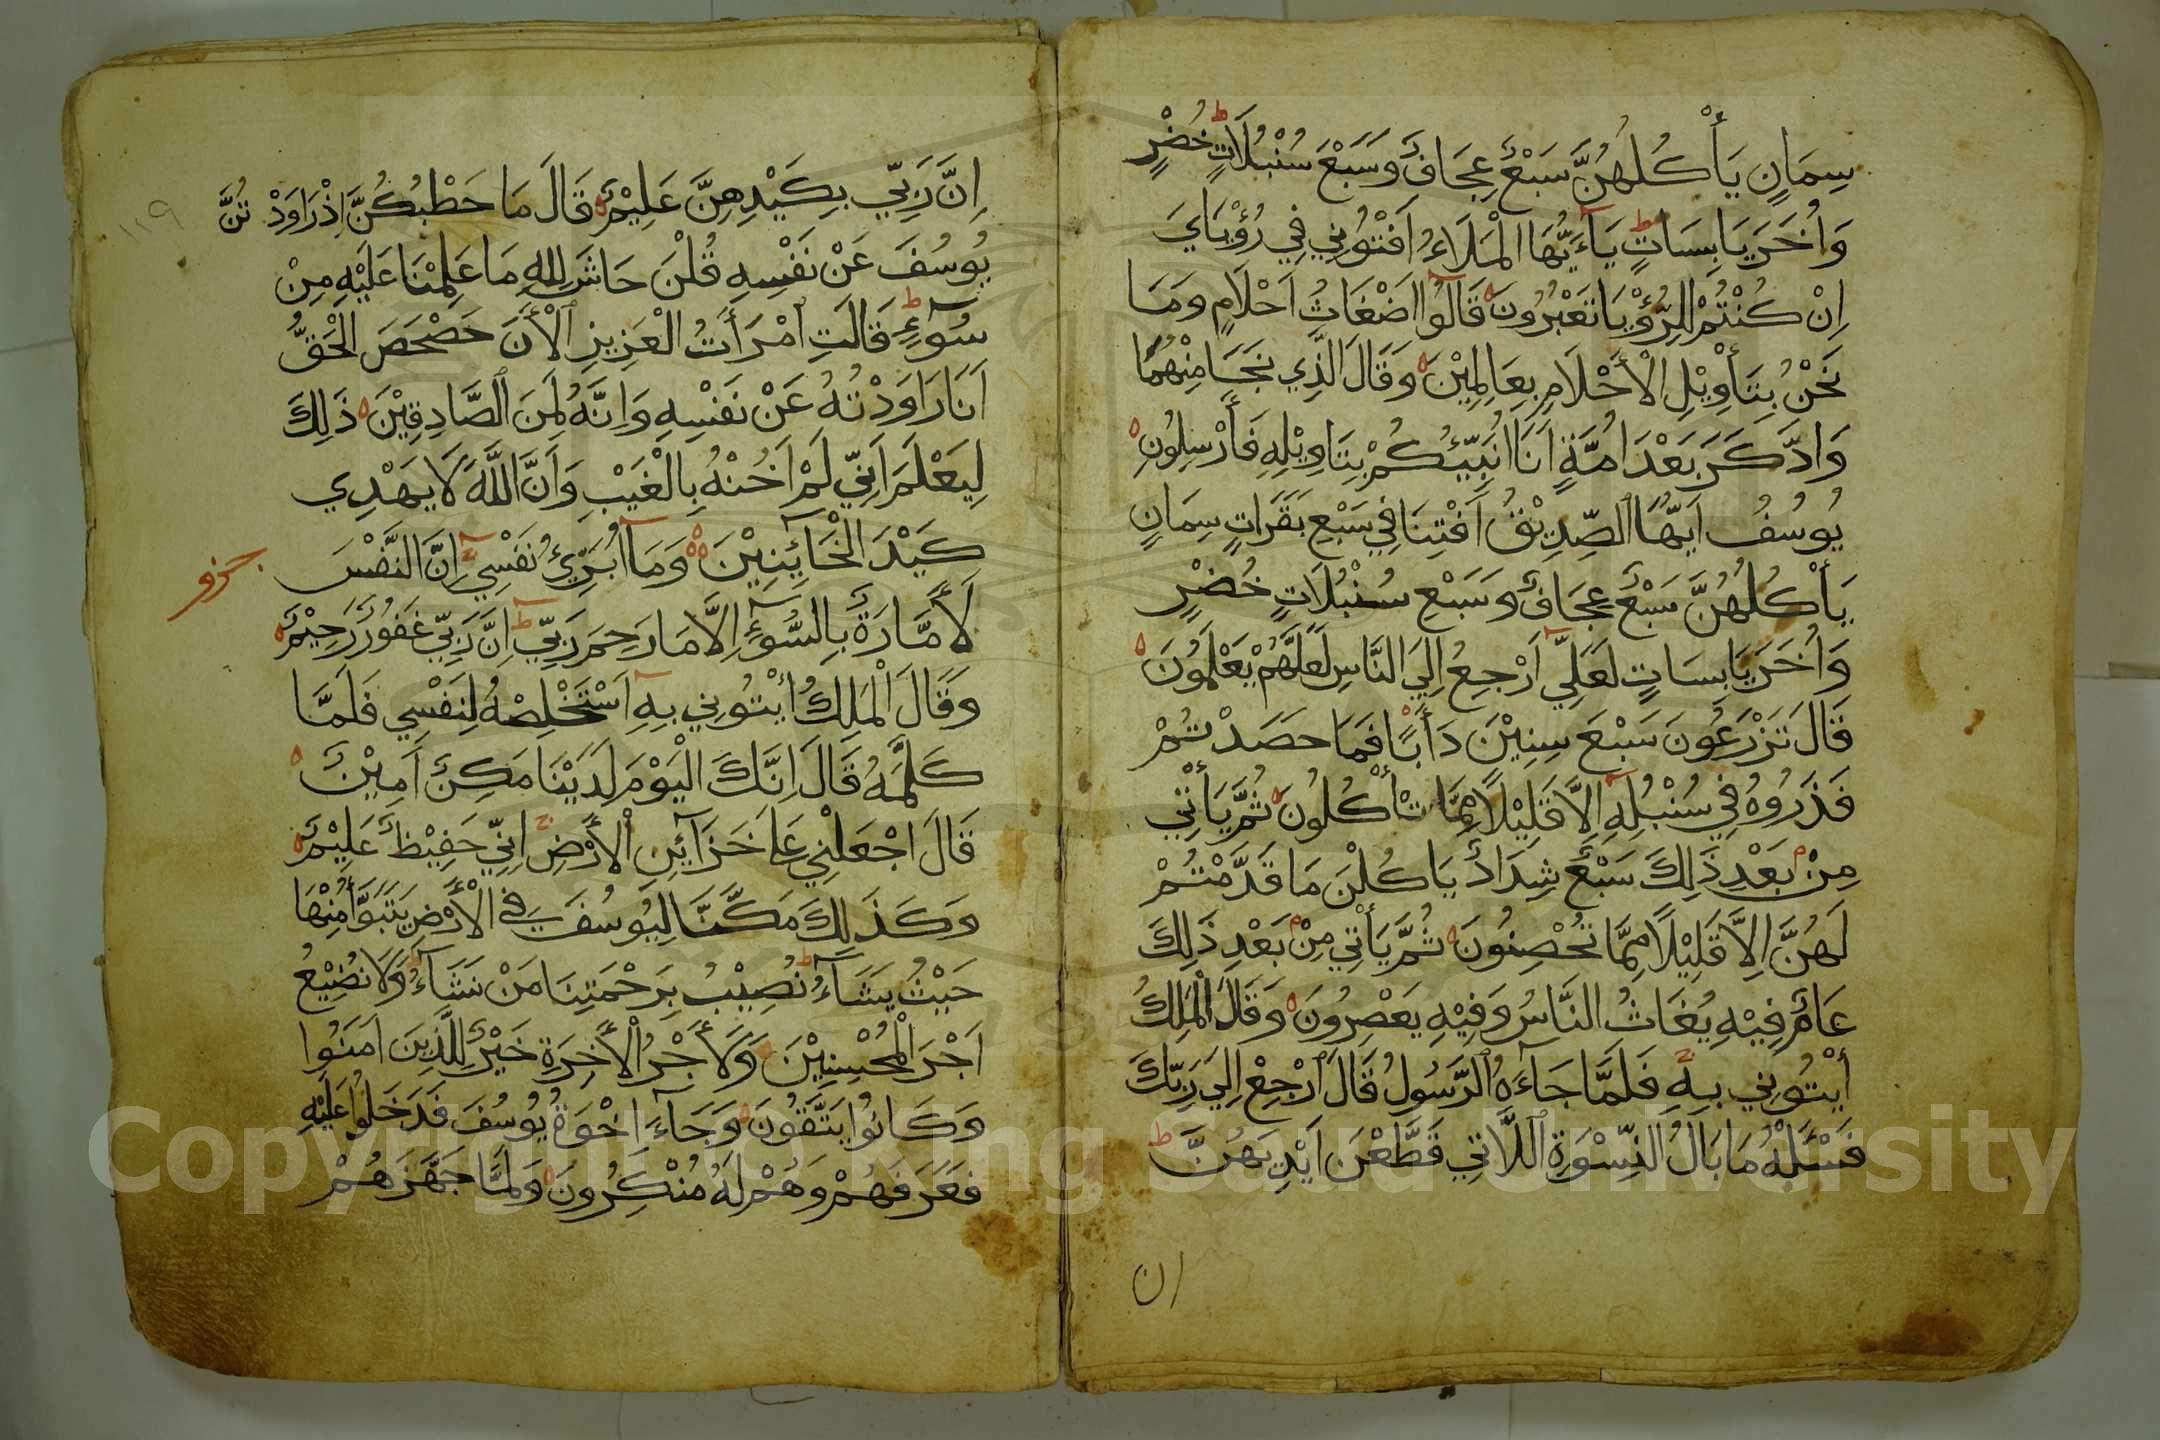 سِمَانٍ يَأْكُلُهُنَّ سَبْعٌ عِجَافٌ وَسَبْعَ سُنْبُلَاتٍ خُضْرٍ
وَاُخَرَ يَابِسَاتٍ يَآءَيُّهَا الْمَلَاءُ اَفْتُونِي فِي رُؤْيَايَ
اِنْ كُنْتُمْ لِلرُّؤْيَا تَعْبُرُونَ قَالُوٓا اَضْغَاثُ اَحْلَامٍ وَمَا
نَحْنُ بِتَأْوِيْلِ الْأَحْلَامِ بِعَالِمِيْنَ وَقَالَ الَّذِي نَجَا مِنْهُمَا
وَادَّكَرَ بَعْدَ اُمَّةٍ اَنَا اُنَبِّئُكُمْ بِتَاوِيْلِهِ فَأَرْسِلُونِ
يُوسُفُ اَيُّهَا الصِّدِيْقُ اَفْتِنَا فِي سَبْعِ بَقَرَاتٍ سِمَانٍ
يَأْكُلُهُنَّ سَبْعٌ عِجَافٌ وَسَبْعِ سُنْبُلَاتٍ خُضْرٍ
وَاُخَرَ يَابِسَاتٍ لَعَلِّيٓ اَرْجِعُ اِلَي النَّاسِ لَعَلَّهُمْ يَعْلَمُونَ
قَالَ تَزْرَعُونَ سَبْعَ سِنِيْنَ دَأَبًا فَمَا حَصَدْتُمْ
فَذَرُوهُ فِي سُنْبُلِهِٓ اِلَّا قَلِيْلًا مِمَّا تَأْكُلُونَ ثُمَّ يَأْتِي
مِنْ بَعْدِ ذَلِكَ سَبْعٌ شِدَادٌ يَاكُلْنَ مَا قَدَّمْتُمْ
لَهُنَّ اِلَّا قَلِيْلًا مِمَّا تُحْصِنُونَ ثُمَّ يَأْتِي مِنْ بَعْدِ ذَلِكَ
عَامٌ فِيْهِ يُغَاثُ النَّاسُ وَفِيْهِ يَعْصِرُونَ وَقَالَ الْمَلِكُ
أيْتُونِي بِهِ فَلَمَّا جَآءَهُ الرَّسُولُ قَالَ ارْجِعْ اِلَي رَبِّكَ
فَسْئَلْهُ مَا بَالُ النِّسْوَةِ اللَّاتِي قَطَّعْنَ اَيْدِيَهُنَّ
ان
اِنَّ رَبِّي بِكَيْدِهِنَّ عَلِيْمٌ قَالَ مَا خَطْبُكُنَّ اِذْ رَاوَدْتُنَّ
١١٩
يُوسُفَ عَنْ نَفْسِهِ قُلْنَ حَاشَ لِلهِ مَا عَلِمْنَا عَلَيْهِ مِنْ
سُوٓءٍ قَالَتِ امْرَأَتُ الْعَزِيزِ الْأَنَ حَصْحَصَ الْحَقُّ
اَنَا رَاوَدْتُهُ عَنْ نَفْسِهِ وَاِنَّهُ لَمِنَ الصَّادِقِيْنَ ذَلِكَ
لِيَعْلَمَ اَنِّي لَمْ اَخُنْهُ بِالْغَيْبِ وَاَنَّ اللَّهَ لَا يَهْدِي
كَيْدَ الْخَآئِنِيْنَ وَمَآ اُبَرِّئُ نَفْسِيٓ اِنَّ النَّفْسَ
لَأَمَّارَةٌ بِالسُّوٓءِ اِلَّا مَا رَحِمَ رَبِّيٓ اِنَّ رَبِّي غَفُورٌ رَحِيْمٌ
وَقَالَ الْمَلِكُ أيْتُونِي بِهِٓ اَسْتَخْلِصْهُ لِنَفْسِي فَلَمَّا
كَلَّمَهُ قَالَ اِنَّكَ الْيَوْمَ لَدَيْنَا مَكِيْنٌ اَمِيْنٌ
قَالَ اجْعَلْنِي عَلَي خَزَآئِنِ الْأَرْضِ اِنِّي حَفِيْظٌ عَلِيْمٌ
وَكَذَلِكَ مَكَّنَّا لِيُوسُفَ فِي الْأَرْضِ يَتَبَوَّأُ مِنْهَا
حَيْثُ يَشَآءُ نُصِيْبُ بِرَحْمَتِنَا مَنْ نَشَآءُ وَلَا نُضِيْعُ
اَجْرَ الْمُحْسِنِيْنَ وَلَأَجْرُ الْأَخِرَةِ خَيْرٌ لِلَّذِينَ اَمَنُوا
وَكَانُوا يَتَّقُونَ وَجَآءَ اِخْوَةُ يُوسُفَ فَدَخَلُوا عَلَيْهِ
فَعَرَفَهُمْ وَهُمْ لَهُ مُنْكِرُونَ وَلَمَّا جَهَّزَهُمْ
Copyright © King Saud University